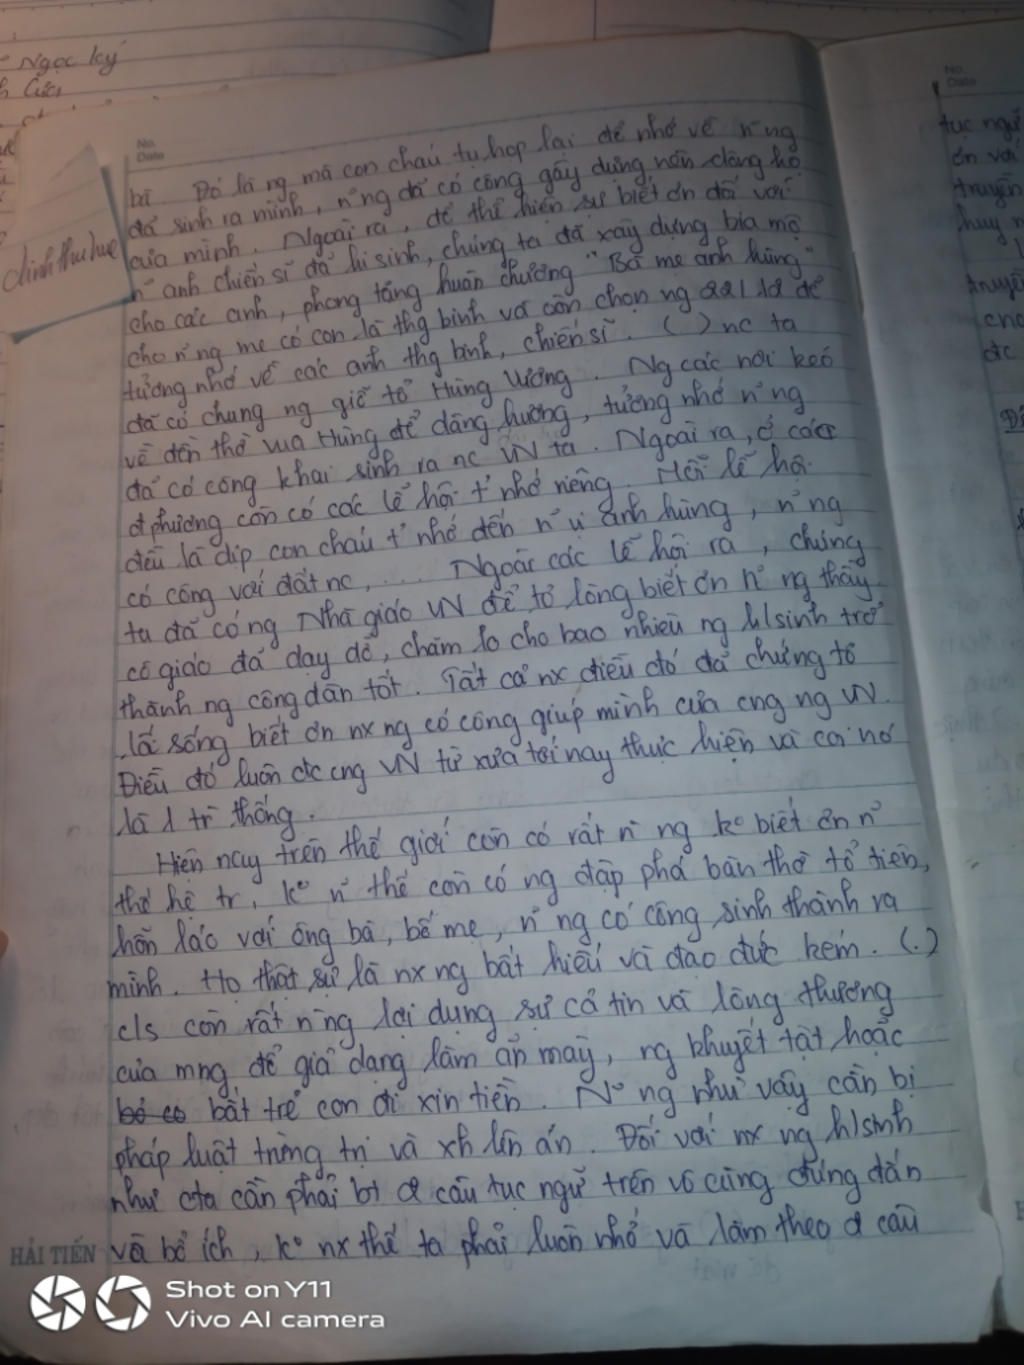 Ngọc Ký
No.
Date
No.
Date
bà Đó là ng mà con cháu tụ họp lại để nhớ về n~ ng
đã sinh ra mình, n~ ng đã có công gây dựng nên dòng họ
của mình. Ngoài ra, để thể hiện sự biết ơn đối với
n~ anh chiến sĩ đã hi sinh, chúng ta đã xây dựng bia mộ
cho các anh, phong tặng huân chương "Bà mẹ anh hùng"
cho n~ ng mẹ có con là thg binh và còn chọn ng 22/12 để
tưởng nhớ về các anh thg binh, chiến sĩ. ( ) nc ta
đã có chung ng giỗ tổ Hùng Vương. Ng các nơi kéo
về đền thờ vua Hùng để dâng hương, tưởng nhớ n~ ng
đã có công khai sinh ra nc VN ta. Ngoài ra, ở các
đphương còn có các lễ hội t' nhớ riêng. Mỗi lễ hội
đều là dịp con cháu t' nhớ đến n~ vị anh hùng, n~ ng
có công với đất nc, ... Ngoài các lễ hội ra, chúng
ta đã có ng Nhà giáo VN để tỏ lòng biết ơn n~ ng thầy
cô giáo đã dạy dỗ, chăm lo cho bao nhiêu ng h/sinh trở
thành ng công dân tốt. Tất cả nx điều đó đã chứng tỏ
lẽ sống biết ơn nx ng có công giúp mình của cng ng VN.
Điều đó luôn đc cng VN từ xưa tới nay thực hiện và coi nó
là 1 tr` thống.
Hiện nay trên thế giới còn có rất n` ng ko biết ơn n~
thế hệ tr, ko n~ thế còn có ng đập phá bàn thờ tổ tiên,
hỗn láo với ông bà, bố mẹ, n~ ng có công sinh thành ra
mình. Họ thật sự là nx ng bất hiếu và đạo đức kém. (.)
c/s còn rất n` ng lợi dụng sự cả tin và lòng thương
của mng, để giả dạng làm ăn mày, ng khuyết tật hoặc
bắt trẻ con đi xin tiền. N~ ng như vậy cần bị
pháp luật trừng trị và xh lên án. Đối với nx ng h/sinh
như cta cần phải bt câu tục ngữ trên vô cùng đúng đắn
và bổ ích, ko nx thế ta phải luôn nhớ và làm theo câu
HẢI TIẾN
Shot on Y11
Vivo AI camera